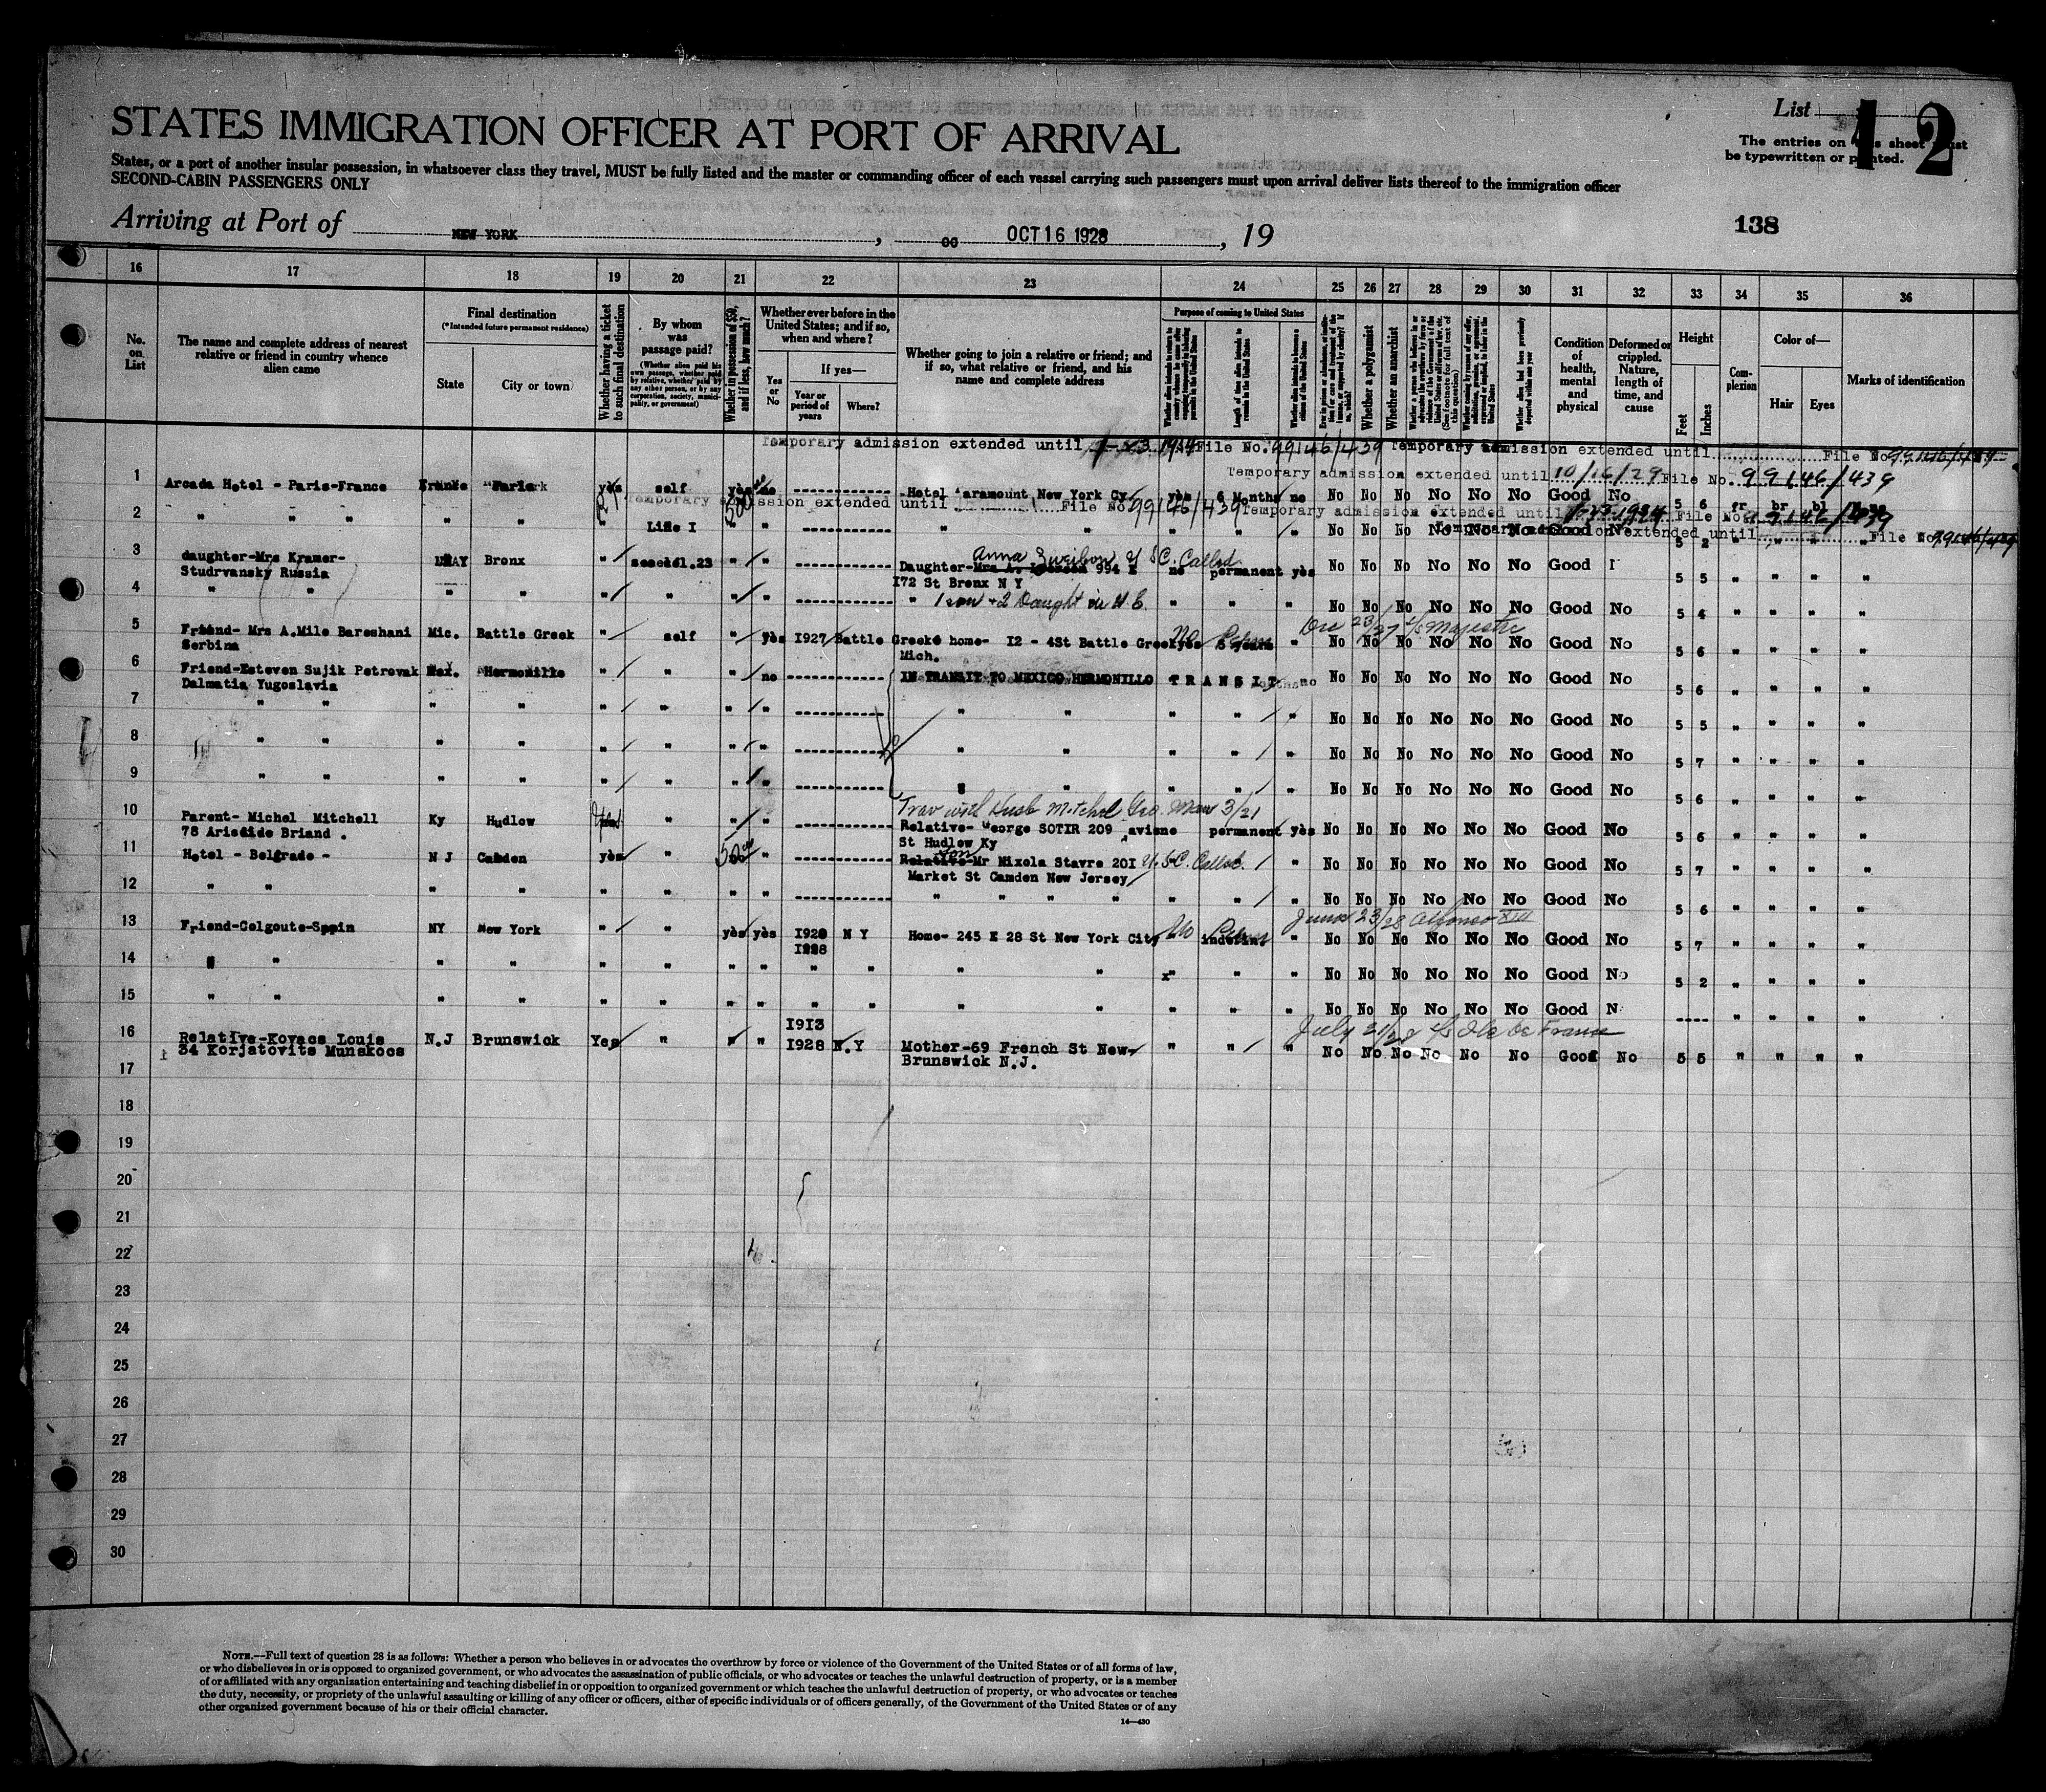 List 12
STATES IMMIGRATION OFFICER AT PORT OF ARRIVAL
The entries on this sheet must
be typewritten or printed.
States, or a port of another insular possession, in whatsoever class they travel, MUST be fully listed and the master or commanding officer of each vessel carrying such passengers must upon arrival deliver lists thereof to the immigration officer
SECOND-CABIN PASSENGERS ONLY
138
Arriving at Port of NEW YORK, OCT 16 1928, 19
16 17 18 19 20 21 22 23 24 25 26 27 28 29 30 31 32 33 34 35 36
No. on List
The name and complete address of nearest relative or friend in country whence alien came
Final destination
(*Intended future permanent residence)
State
City or town
Whether having a ticket to such final destination
By whom was passage paid?
(Whether alien paid his own passage, whether paid by relative, whether paid by any other person, or by any corporation, society, municipality, or government)
Whether in possession of $50, and if less, how much?
Whether ever before in the United States; and if so, when and where?
Yes or No
If yes—
Year or period of years
Where?
Whether going to join a relative or friend; and if so, what relative or friend, and his name and complete address
Purpose of coming to United States
Length of time alien intends to remain in the United States
Whether alien intends to become a citizen of the United States
Whether a polygamist
Whether an anarchist
Condition of health, mental and physical
Deformed or crippled. Nature, length of time, and cause
Height
Feet
Inches
Complexion
Color of—
Hair
Eyes
Marks of identification
Temporary admission extended until File No. 99146/439 Temporary admission extended until File No. 99146/439
Temporary admission extended until 10/16/29 File No. 99146/439
1 Arcada Hotel - Paris-France France Paris yes self yes no Hotel Paramount New York Cy yes 6 Months no No No No No No No Good No 5 6 fr br bl
Temporary admission extended until File No. 99146/439 Temporary admission extended until File No. 99146/439
2 " " " " " " " " " " " " No No No No No No Good No 5 2 " " " "
Temporary admission extended until File No. 99146/439
3 daughter-Mrs Kramer- Bronx " " " Daughter- 994 E no permanent yes No No No No No No Good 5 5 " " " "
Anna Zweibon U S C. Called
Studrvansky Russia 172 St Bronx N Y
4 " " " " " " " " " 1 son + 2 Daught in U.S. " " " No No No No No No Good No 5 4 " " " "
Dec 23/27 S/S Majestic
5 Friend- Mrs A.Mile Bareshani Mic. Battle Greek " self " yes 1927 Battle Greek home- 12 - 4St Battle Greek No " No No No No No No Good No 5 6 " " " "
Serbina Mich.
6 Friend-Esteven Sujik Petrovak Mex. Hermonillo " " " no IN TRANSIT TO MEXICO HERMONILLO TRANSIT no No No No No No No Good No 5 6 " " " "
Dalmatia Yugoslavia
7 " " " " " " " " " " " " No No No No No No Good No 5 5 " " " "
8 " " " " " " " " " " " " No No No No No No Good No 5 7 " " " "
9 " " " " " " " " " " " No No No No No No Good No 5 6 " " " "
Trav with Husb Mitchel Geo. 3/21
10 Parent- Michel Mitchell Ky Hudlow " " " Relative- George SOTIR 209 permanent yes No No No No No No Good No 5 6 " " " "
78 Aristide Briand . St Hudlow Ky
11 Hotel - Belgrade - N J Camden yes " 50 " Son Mr Nixola Stavre 201 U.S.C. Called. " No No No No No No Good No 5 7 " " " "
Market St Camden New Jersey
12 " " " " " " " " " " " " " " No No No No No No Good No 5 6 " " " "
June 23/28 Alfonso XIII
13 Friend-Colgoute-Sppin NY New York " " yes yes 1920 N Y Home- 245 E 28 St New York City No indefini " No No No No No No Good No 5 7 " " " "
1928
14 " " " " " " " " " " " " " " No No No No No No Good No 5 2 " " " "
15 " " " " " " " " " " " " " " " No No No No No No Good N 
July 21/28 S/S Ile de France
1913
16 Relative-Kovacs Louis N.J Brunswick Yes " " " 1928 N.Y Mother-69 French St New- " " " No No No No No No Good No 5 5 " " " "
34 Korjatovits Munskocs Brunswick N.J.
17
18
19
20
21
22
23
24
25
26
27
28
29
30
NOTE.—Full text of question 28 is as follows: Whether a person who believes in or advocates the overthrow by force or violence of the Government of the United States or of all forms of law,
or who disbelieves in or is opposed to organized government, or who advocates the assassination of public officials, or who advocates or teaches the unlawful destruction of property, or is a member
of or affiliated with any organization entertaining and teaching disbelief in or opposition to organized government or which teaches the unlawful destruction of property, or who advocates or teaches
the duty, necessity, or propriety of the unlawful assaulting or killing of any officer or officers, either of specific individuals or of officers generally, of the Government of the United States or of any
other organized government because of his or their official character.
14—430